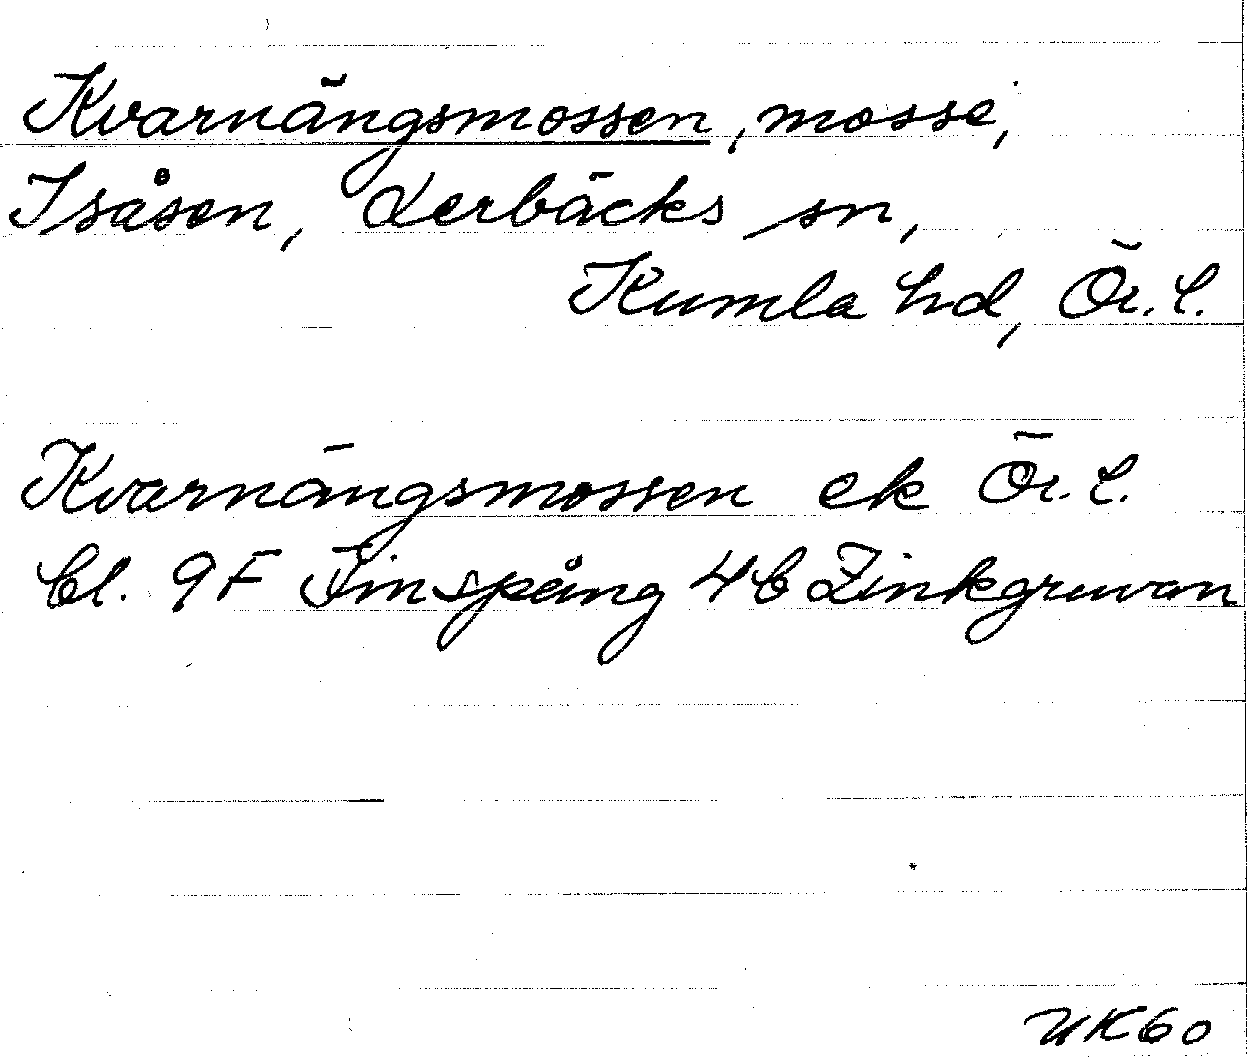 Kvarnängsmossen, mosse,
Isåsen, Lerbäcks sn,
Kumla hd, Ör. l.
Kvarnängsmossen ek Ör. l.
bl. 9F Finspång 4b Zinkgruvan
UK60